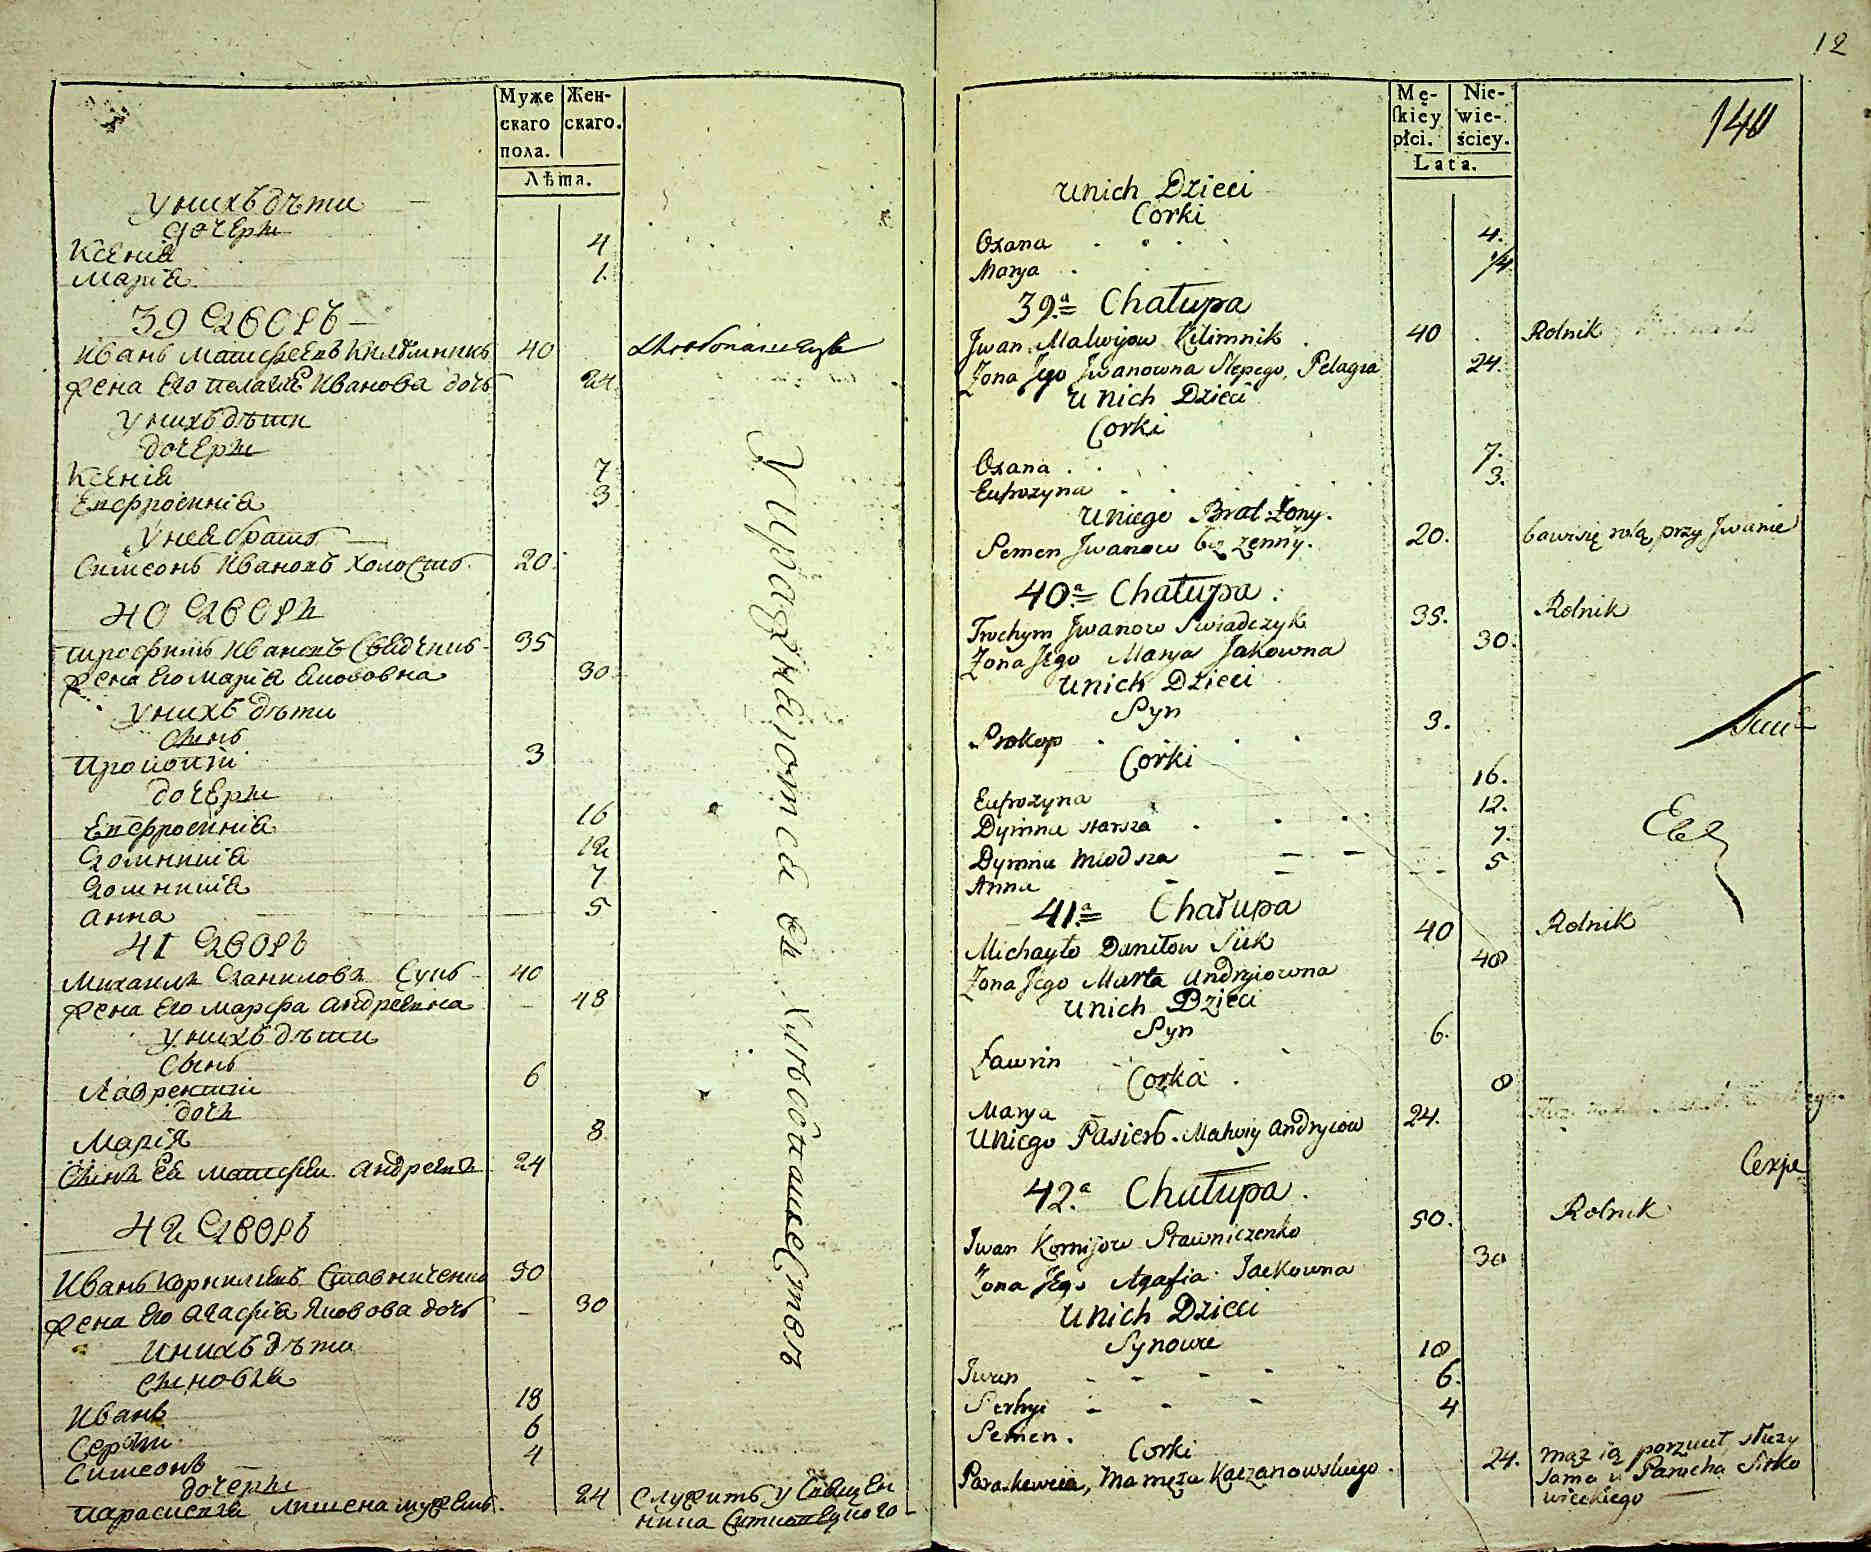 Муже Жен-
скаго скаго.
пола.
Лѣта.
у нихъ дѣти
дочери
Ксенiя 4
Марiя 1.
39 Дворъ
Иванъ Матфеевъ Килимникъ 40
жена Его Пелагiя Иванова дочь 24
у нихъ дѣти
дочери
Ксенiя 7
Епфросинiя 3
У нея братъ
Симеонъ Ивановъ холостъ 20.
40 Дворъ
Трофимъ Ивановъ 35
жена Его Марiя 30
у нихъ дѣти
сынъ
Прокопiй 3
дочери
Епфросинiя 16
Домникiя 12
Домникiя 7
Анна 5
41 Дворъ
Михаилъ Даниловъ 40
жена Его Марфа Андреевна 48
у нихъ дѣти
Сынъ
Лаврентiй 6
дочь
Марiя 8
Сынъ Ея Матфей Андреевъ 24
42 Дворъ
Иванъ Корнилiевъ Ставниченко 50
жена Его Агафiя Яковова дочь 30
у нихъ дѣти
сыновья
Иванъ 18
Сергiй 6
Симеонъ 4
дочери
24
служитъ у Священ
ника
Упражняются въ хлѣбопашествѣ
12
140
Mę- Nie-
skiey wie-
płci. ściey.
Lata.
Unich Dzieci
Corki
Oxana 4.
Marya 1/4
39.a Chałupa
Jwan Matwijow Kilimnik 40 Rolnik
Zona Jego Jwanowna Slepego, Pelagia 24.
Unich Dzieci
Corki
Oxana 7.
Eufrozyna 3.
Uniego Brat Zony.
Semen Jwanow bez zenny. 20. bawisię rolą przy Jwanie
40.a Chałupa.
Trochym Jwanow Swiadczyk 35. Rolnik
Zona Jego Marya Jakowna 30.
Unich Dzieci
Syn
Prokop 3.
Corki
Eufrozyna 16.
Dymna starsza 12.
Dymna Młodsza 7.
Anna 5
41.a Chałupa
Michayło Daniłow Suk 40 Rolnik
Zona Jego Marta Andryiowna 48
Unich Dzieci
Syn
Ławrin 6.
Corka
Marya 8
Uniego Pasierb. Matwiy Andryiow 24.
42.a Chałupa.
Jwan Kornijow Stawniczenko 50. Rolnik
Zona Jego Agafia Jackowna 30
Unich Dzieci
Synowie
Jwan 18
Serhyi 6.
Semen. 4
Corki
Paraskewia, Ma męża Kaczanowskiego. 24. mąż ią porzucił, słuzy
sama u Parocha